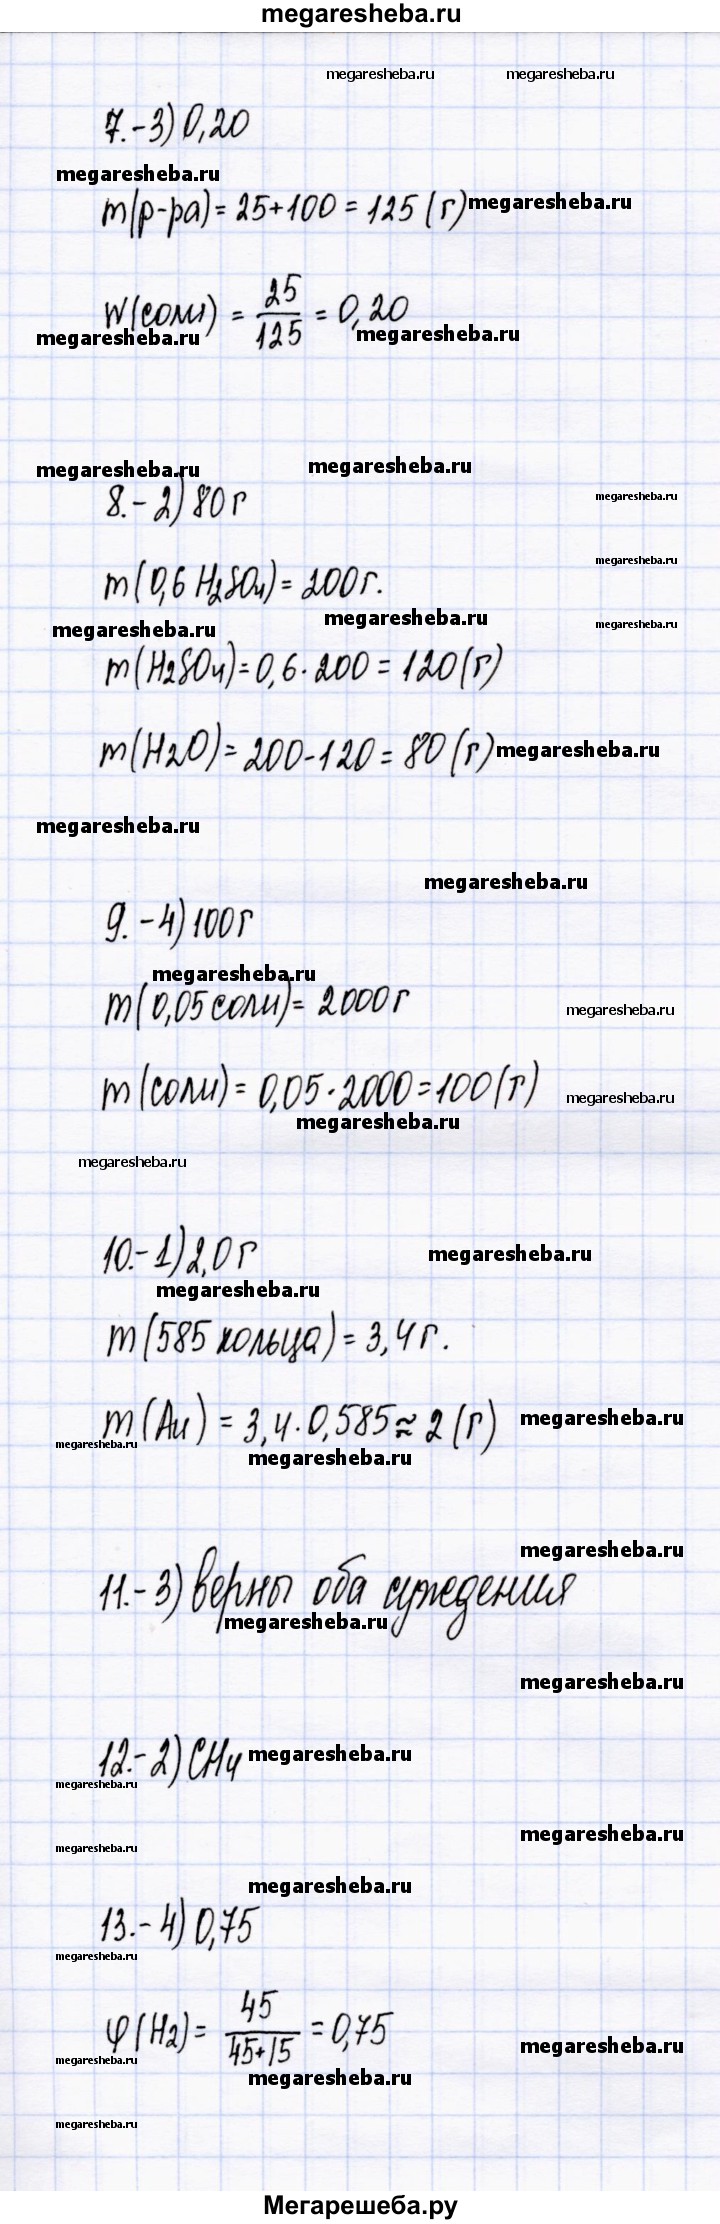 megaresheba.ru
megaresheba.ru megaresheba.ru
7.-3) 0,20
megaresheba.ru
m(р-ра) = 25+100 = 125 (г) megaresheba.ru
W(соли) = 25/125 = 0,20
megaresheba.ru megaresheba.ru
megaresheba.ru megaresheba.ru
8.-2) 80 г megaresheba.ru
megaresheba.ru
m(0,6 H2SO4) = 200 г.
megaresheba.ru megaresheba.ru megaresheba.ru
m(H2SO4) = 0,6·200 = 120 (г)
m(H2O) = 200-120 = 80 (г) megaresheba.ru
megaresheba.ru
megaresheba.ru
9.-4) 100 г
megaresheba.ru
m(0,05 соли) = 2000 г megaresheba.ru
m(соли) = 0,05·2000 = 100 (г) megaresheba.ru
megaresheba.ru
megaresheba.ru
10.-1) 2,0 г megaresheba.ru
megaresheba.ru
m(585 кольца) = 3,4 г.
m(Au) = 3,4·0,585 ≈ 2 (г) megaresheba.ru
megaresheba.ru megaresheba.ru
megaresheba.ru
11.-3) верны оба суждения
megaresheba.ru
megaresheba.ru
12.-2) CH4 megaresheba.ru
megaresheba.ru
megaresheba.ru
megaresheba.ru
megaresheba.ru
13.-4) 0,75
megaresheba.ru
φ(H2) = 45/45+15 = 0,75 megaresheba.ru
megaresheba.ru megaresheba.ru
megaresheba.ru
Мегарешеба.ру